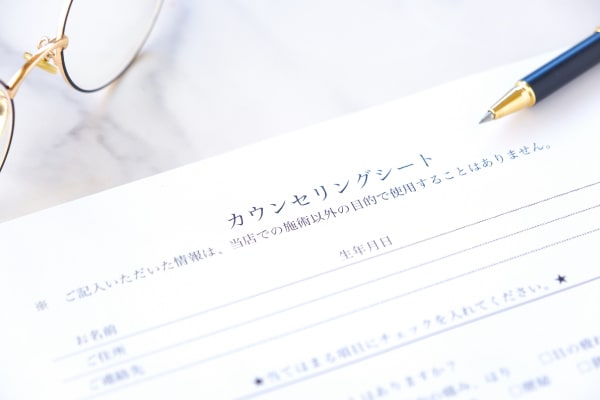 カウンセリングシート
※　ご記入いただいた情報は、当店での施術以外の目的で使用することはありません。
お名前　生年月日
ご住所
ご連絡先
★当てはまる項目にチェックを入れてください。★
はありますか？
の痛み、はり
□目の疲れ
□便秘